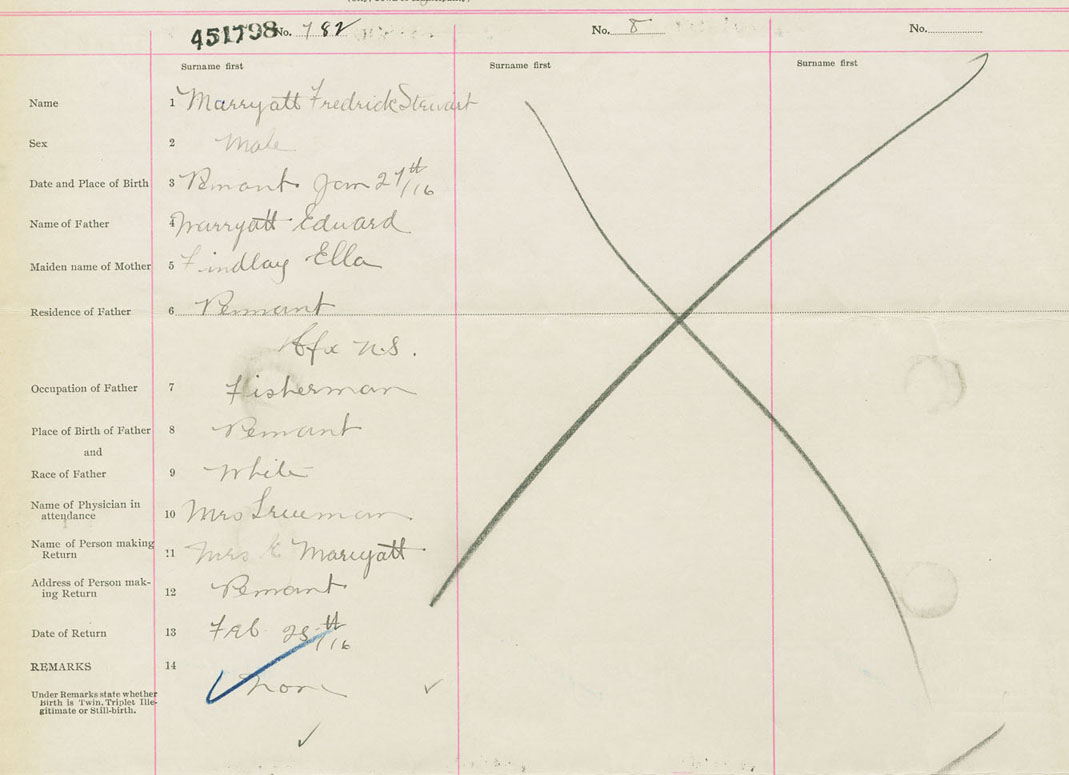 451798 No. 782 No. 8 No.
Surname first Surname first Surname first
Name 1 Marryatt Fredrick Stewart
Sex 2 Male
Date and Place of Birth 3 Pennant Jan 27th/16
Name of Father 4 Marryatt Edward
Maiden name of Mother 5 Findlay Ella
Residence of Father 6 Pennant
Hfx N.S.
Occupation of Father 7 Fisherman
Place of Birth of Father 8 Pennant
and
Race of Father 9 White
Name of Physician in
attendance 10 Mrs Trueman
Name of Person making
Return 11 Mrs E Marryatt
Address of Person mak-
ing Return 12 Pennant
Date of Return 13 Feb 25th/16
REMARKS 14
None
Under Remarks state whether
Birth is Twin, Triplet Ille-
gitimate or Still-birth.